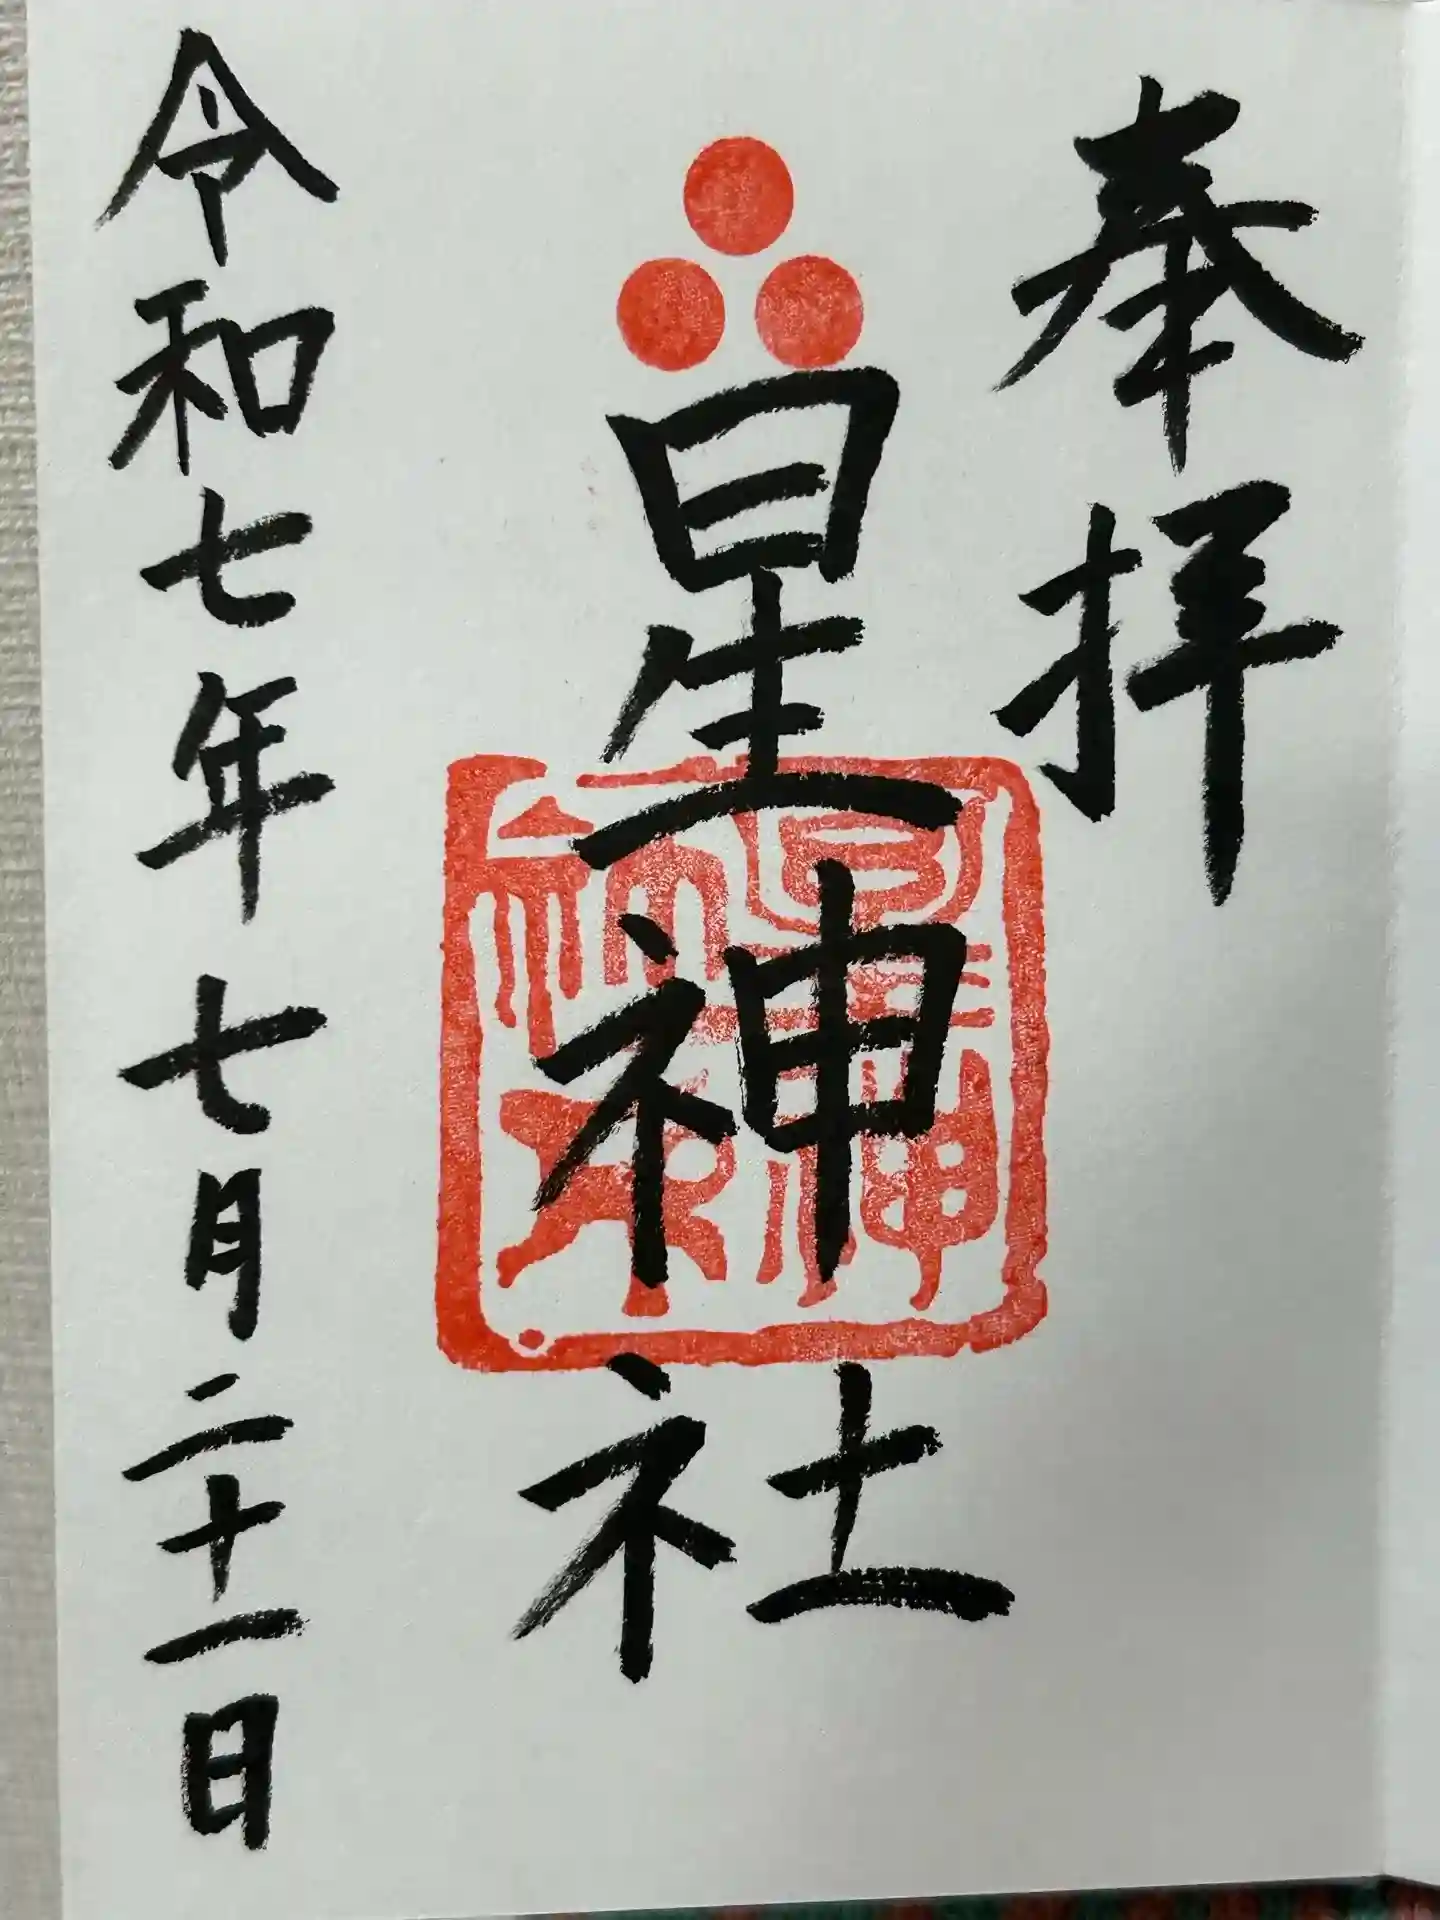 奉拝
星神社
令和七年七月二十一日